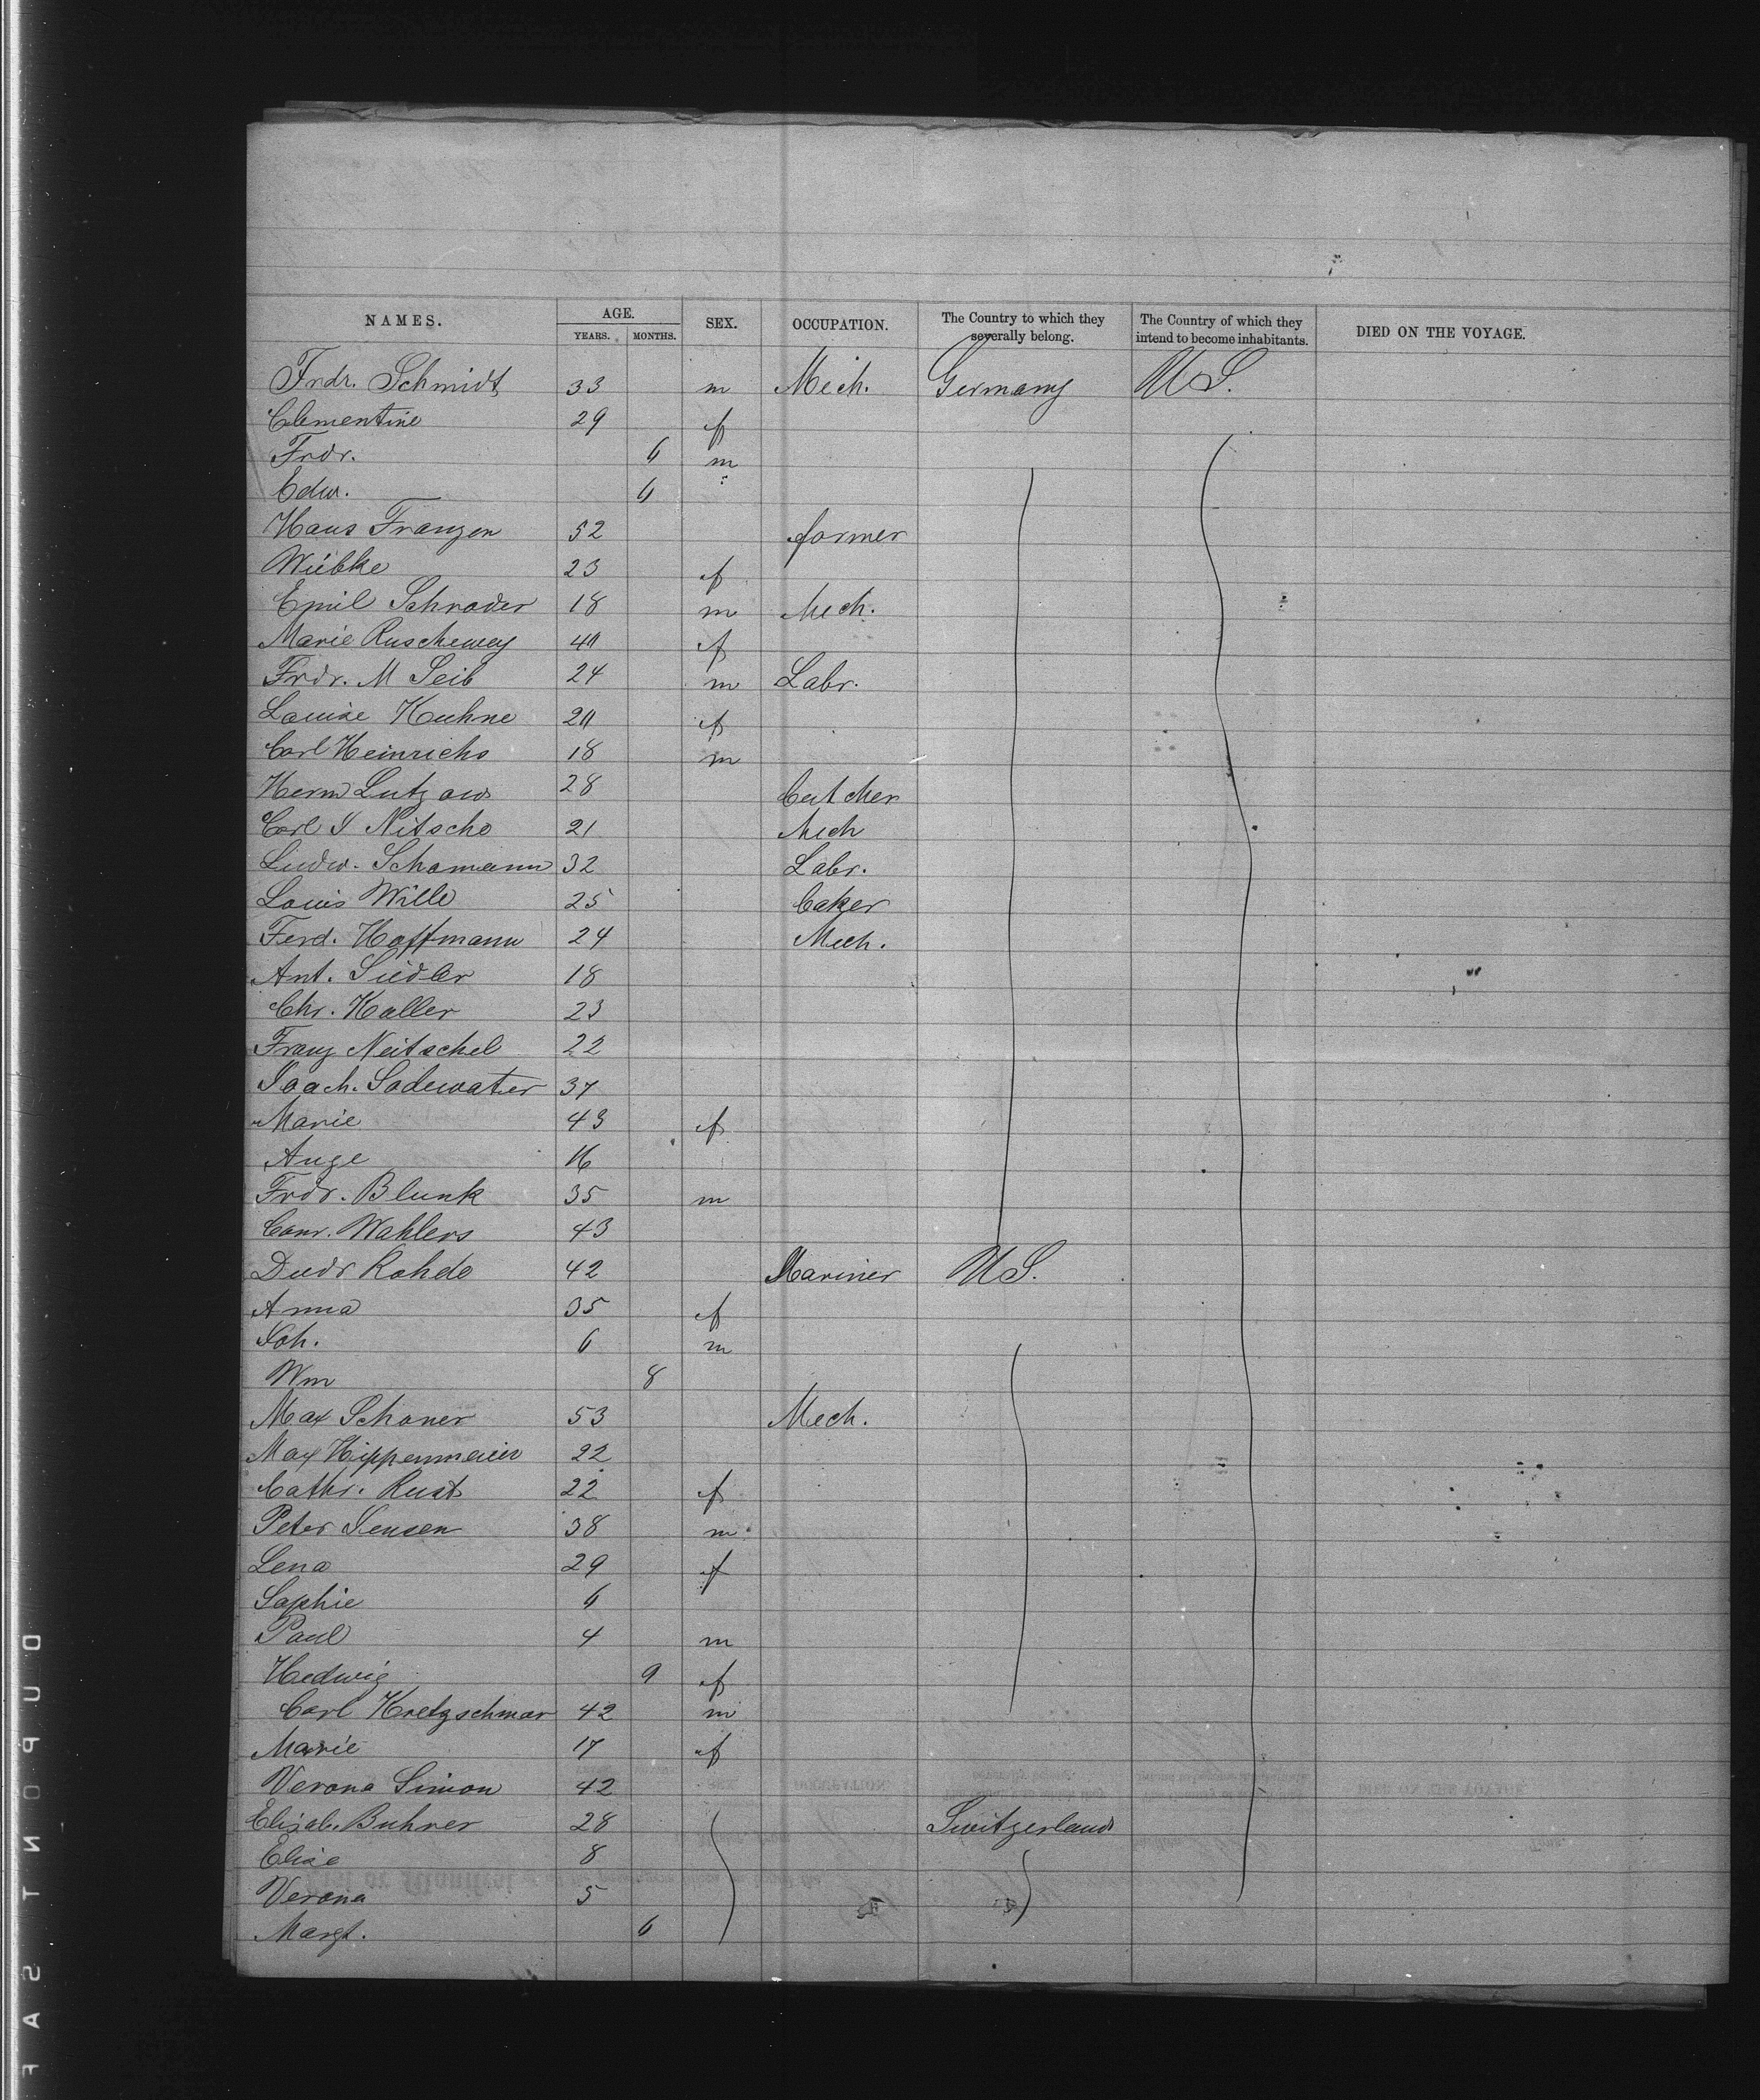 NAMES. AGE. YEARS. MONTHS. SEX. OCCUPATION. The Country to which they severally belong. The Country of which they intend to become inhabitants. DIED ON THE VOYAGE.
Frdr. Schmidt 33 m Mech. Germany U S.
Clementine 29 f
Frdr. 6 m
Edw. 6
Hans Franzen 52 farmer
Wiebke 23 f
Emil Schrader 18 m Mech.
Marie Ruschewey 40 f
Frdr. M Seib 24 m Labr.
Louise Kuhne 20 f
Carl Heinrichs 18 m
Herm Lutzow 28 butcher
Carl I Nitsche 21 Mech
Ludw. Schamann 32 Labr.
Louis Wille 25 baker
Ferd. Hoffmann 24 Mech.
Ant. Siedler 18
Chr. Haller 23
Franz Neitschel 22
Joach. Sadewater 37
Marie 43 f
Auge 16
Frdr. Blunk 35 m
Conr. Wahlers 43
Diedr Rohde 42 Mariner U S.
Anna 35 f
Joh. 6 m
Wm 8
Max Schoner 53 Mech.
Max Hippenmeier 22
Cathr. Rust 22 f
Peter Jensen 38 m
Lena 29 f
Sophie 6
Paul 4 m
Hedwig 9 f
Carl Kretzschmar 42 m
Marie 17 f
Verona Simon 42
Elisab. Buhrer 28 Switzerland
Elise 8
Verona 5
Margt. 6
DUPONT SAF